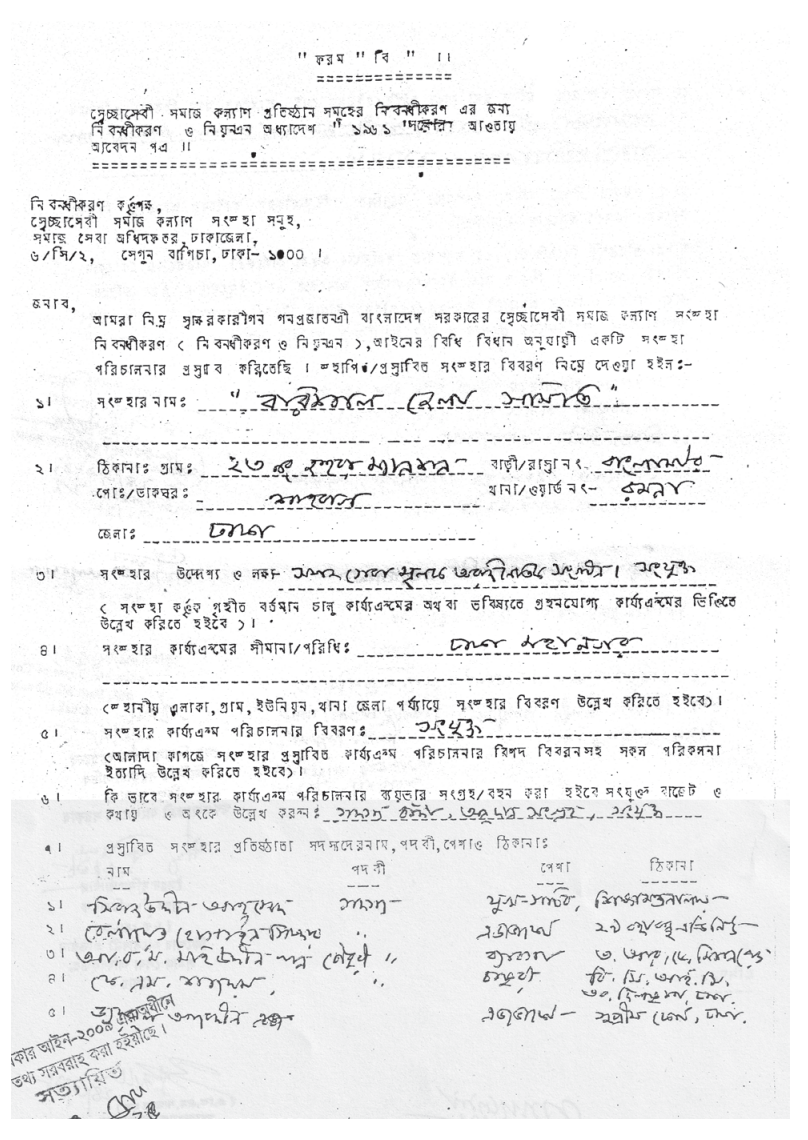 " ফরম " বি " ।।
স্বেচ্ছাসেবী সমাজ কল্যাণ প্রতিষ্ঠান সমূহের নিবন্ধীকরণ এর জন্য
নিবন্ধীকরণ ও নিয়ন্ত্রন অধ্যাদেশ " ১৯৬১ " সনের আওতায়
আবেদন পত্র ।।
নিবন্ধীকরণ কর্তৃপক্ষ,
স্বেচ্ছাসেবী সমাজ কল্যাণ সংস্হা সমুহ,
সমাজ সেবা অধিদফতর, ঢাকাজেলা,
৬/সি/২, সেগুন বাগিচা, ঢাকা- ১০০০ ।
জনাব,
আমরা নিম্ন স্বাক্ষরকারীগন গনপ্রজাতন্ত্রী বাংলাদেশ সরকারের স্বেচ্ছাসেবী সমাজ কল্যাণ সংস্হা
নিবন্ধীকরণ ( নিবন্ধীকরণ ও নিয়ন্ত্রন ), আইনের বিধি বিধান অনুযায়ী একটি সংস্হা
পরিচালনার প্রস্তাব করিতেছি । স্হাপিত/প্রস্তাবিত সংস্হার বিবরণ নিম্নে দেওয়া হইল:-
১। সংস্হার নাম: " বরিশাল জেলা সমিতি "
২। ঠিকানাঃ গ্রাম: ২৩ নং বাড়ী/রাস্তা নং- বাংলামটর
পোঃ/ডাকঘর: - থানা/ওয়ার্ড নং- রমনা
জেলাঃ ঢাকা
৩। সংস্হার উদ্দেশ্য ও লক্ষ্য- সংযুক্ত
( সংস্হা কর্তৃক গৃহীত বর্তমান চালু কার্য্যক্রমের অথবা ভবিষ্যতে গ্রহনযোগ্য কার্য্যক্রমের ভিত্তিতে
উল্লেখ করিতে হইবে )।
৪। সংস্হার কার্য্যক্রমের সীমানা/পরিধি: ঢাকা মহানগর
(স্হানীয় এলাকা, গ্রাম, ইউনিয়ন, থানা জেলা পর্য্যায়ে সংস্হার বিবরণ উল্লেখ করিতে হইবে)।
৫। সংস্হার কার্য্যক্রম পরিচালনার বিবরণ: সংযুক্ত
(আলাদা কাগজে সংস্হার প্রস্তাবিত কার্য্যক্রম পরিচালনার বিশদ বিবরনসহ সকল পরিকল্পনা
ইত্যাদি উল্লেখ করিতে হইবে)।
৬। কি ভাবে সংস্হার কার্য্যক্রম পরিচালনার ব্যয়ভার সংগ্রহ/বহন করা হইবে সংযুক্ত বাজেট ও
কথায় ও অংকে উল্লেখ করুন: সদস্য চাঁদা, অনুদান সংগ্রহ, সংযুক্ত
৭। প্রস্তাবিত সংস্হার প্রতিষ্ঠাতা সদস্যদের নাম, পদবী, পেশাও ঠিকানাঃ
নাম পদবী পেশা ঠিকানা
১। উদ্দীন আহমেদ সদস্য যুগ্ম-সচিব, শিক্ষামন্ত্রনালয়
২। হোসাইন " এডভোকেট
৩। আ, ব, ম, উদ্দীন চৌধুরী "
৪। কে, এম, " চাকুরী বি. সি. আই. সি,
দিলকুশা, ঢাকা.
৫। এডভোকেট সুপ্রীম কোর্ট, ঢাকা.
কার আইন-২০০৯ এর অধীনে
তথ্য সরবরাহ করা হইয়াছে।
সত্যায়িত